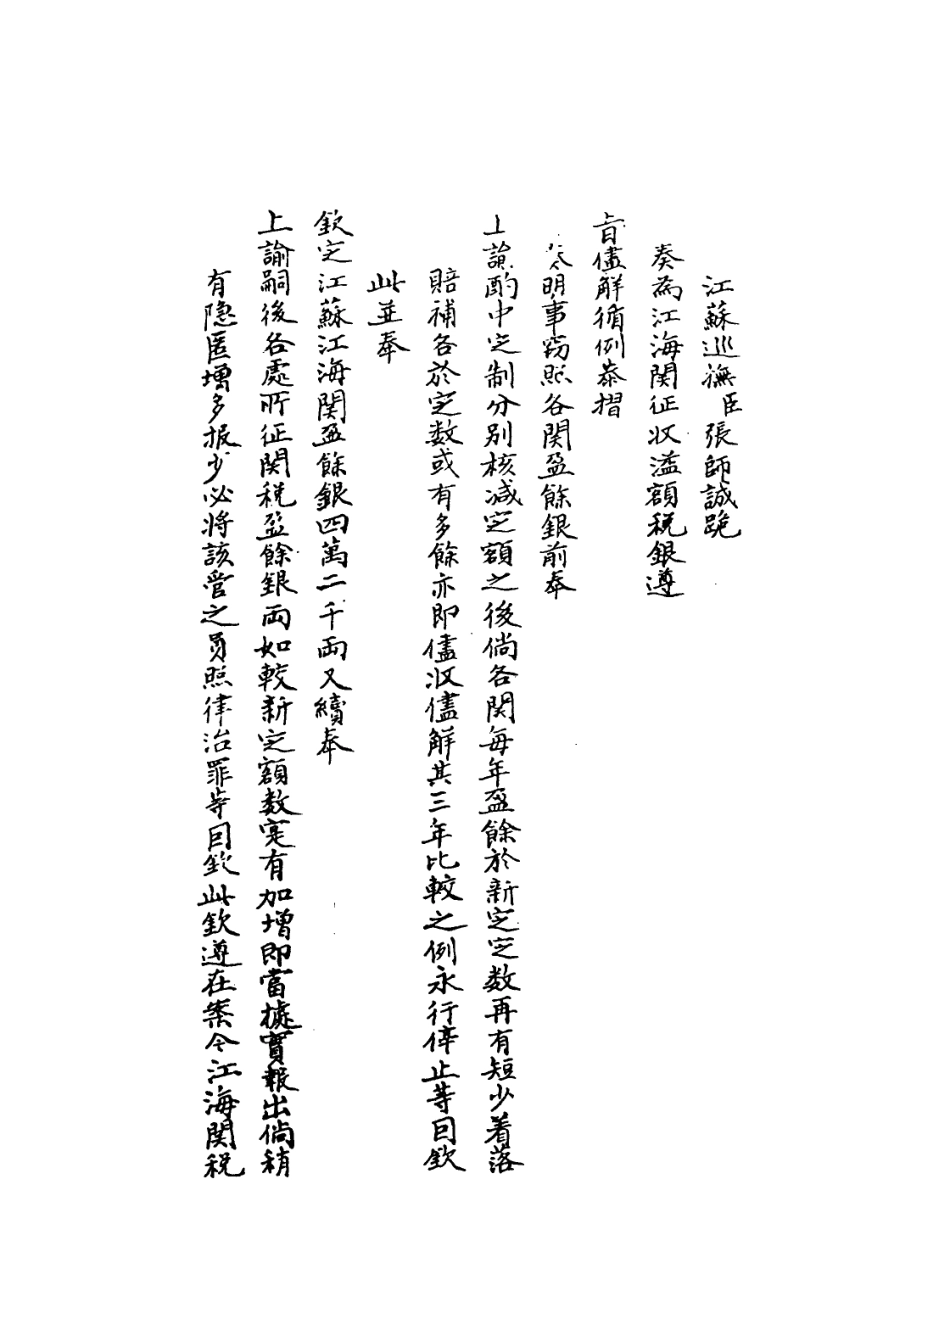 江蘇巡撫臣張師誠跪
奏為江海関征收溢額稅銀遵
旨儘解循例恭摺
奏明事窃照各関盈餘銀前奉
上諭酌中定制分别核减定額之後倘各関每年盈餘於新定定数再有短少着落
賠補各於定数或有多餘亦即儘收儘解其三年比較之例永行停止等因欽
此並奉
欽定江蘇江海関盈餘銀四萬二千両又續奉
上諭嗣後各處所征関税盈餘銀両如較新定額数寔有加增即當據實報出倘稍
有隐匿增多报少必將該管之員照律治罪等因欽此欽遵在案今江海関税